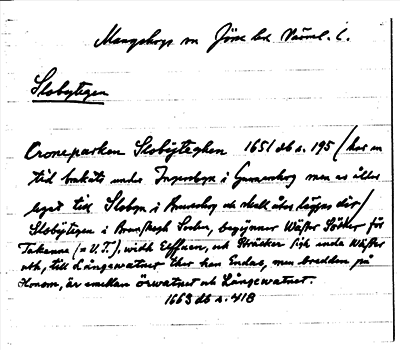 Mangskogs sn Jösse hd Värml. l.
Slobytegen
Croneparken Slobÿteghen 1651 db s. 195 (har en
tid brukats under Ingersbyn i Gunnarskog men är äldre
leget till Slobyn i Brunskog och skall åter läggas dit)
Slobÿtegen i Brunskogh Sochn, begÿnner Wäster Söder för
Takenne (= V. T.), widh Elffwen, och sträcker sigh unda Wäster
uth, till Långewatnet ther han Endas, men bredden på
Honom, är emellan örwatnet och Långewatnet.
1663 db s. 418